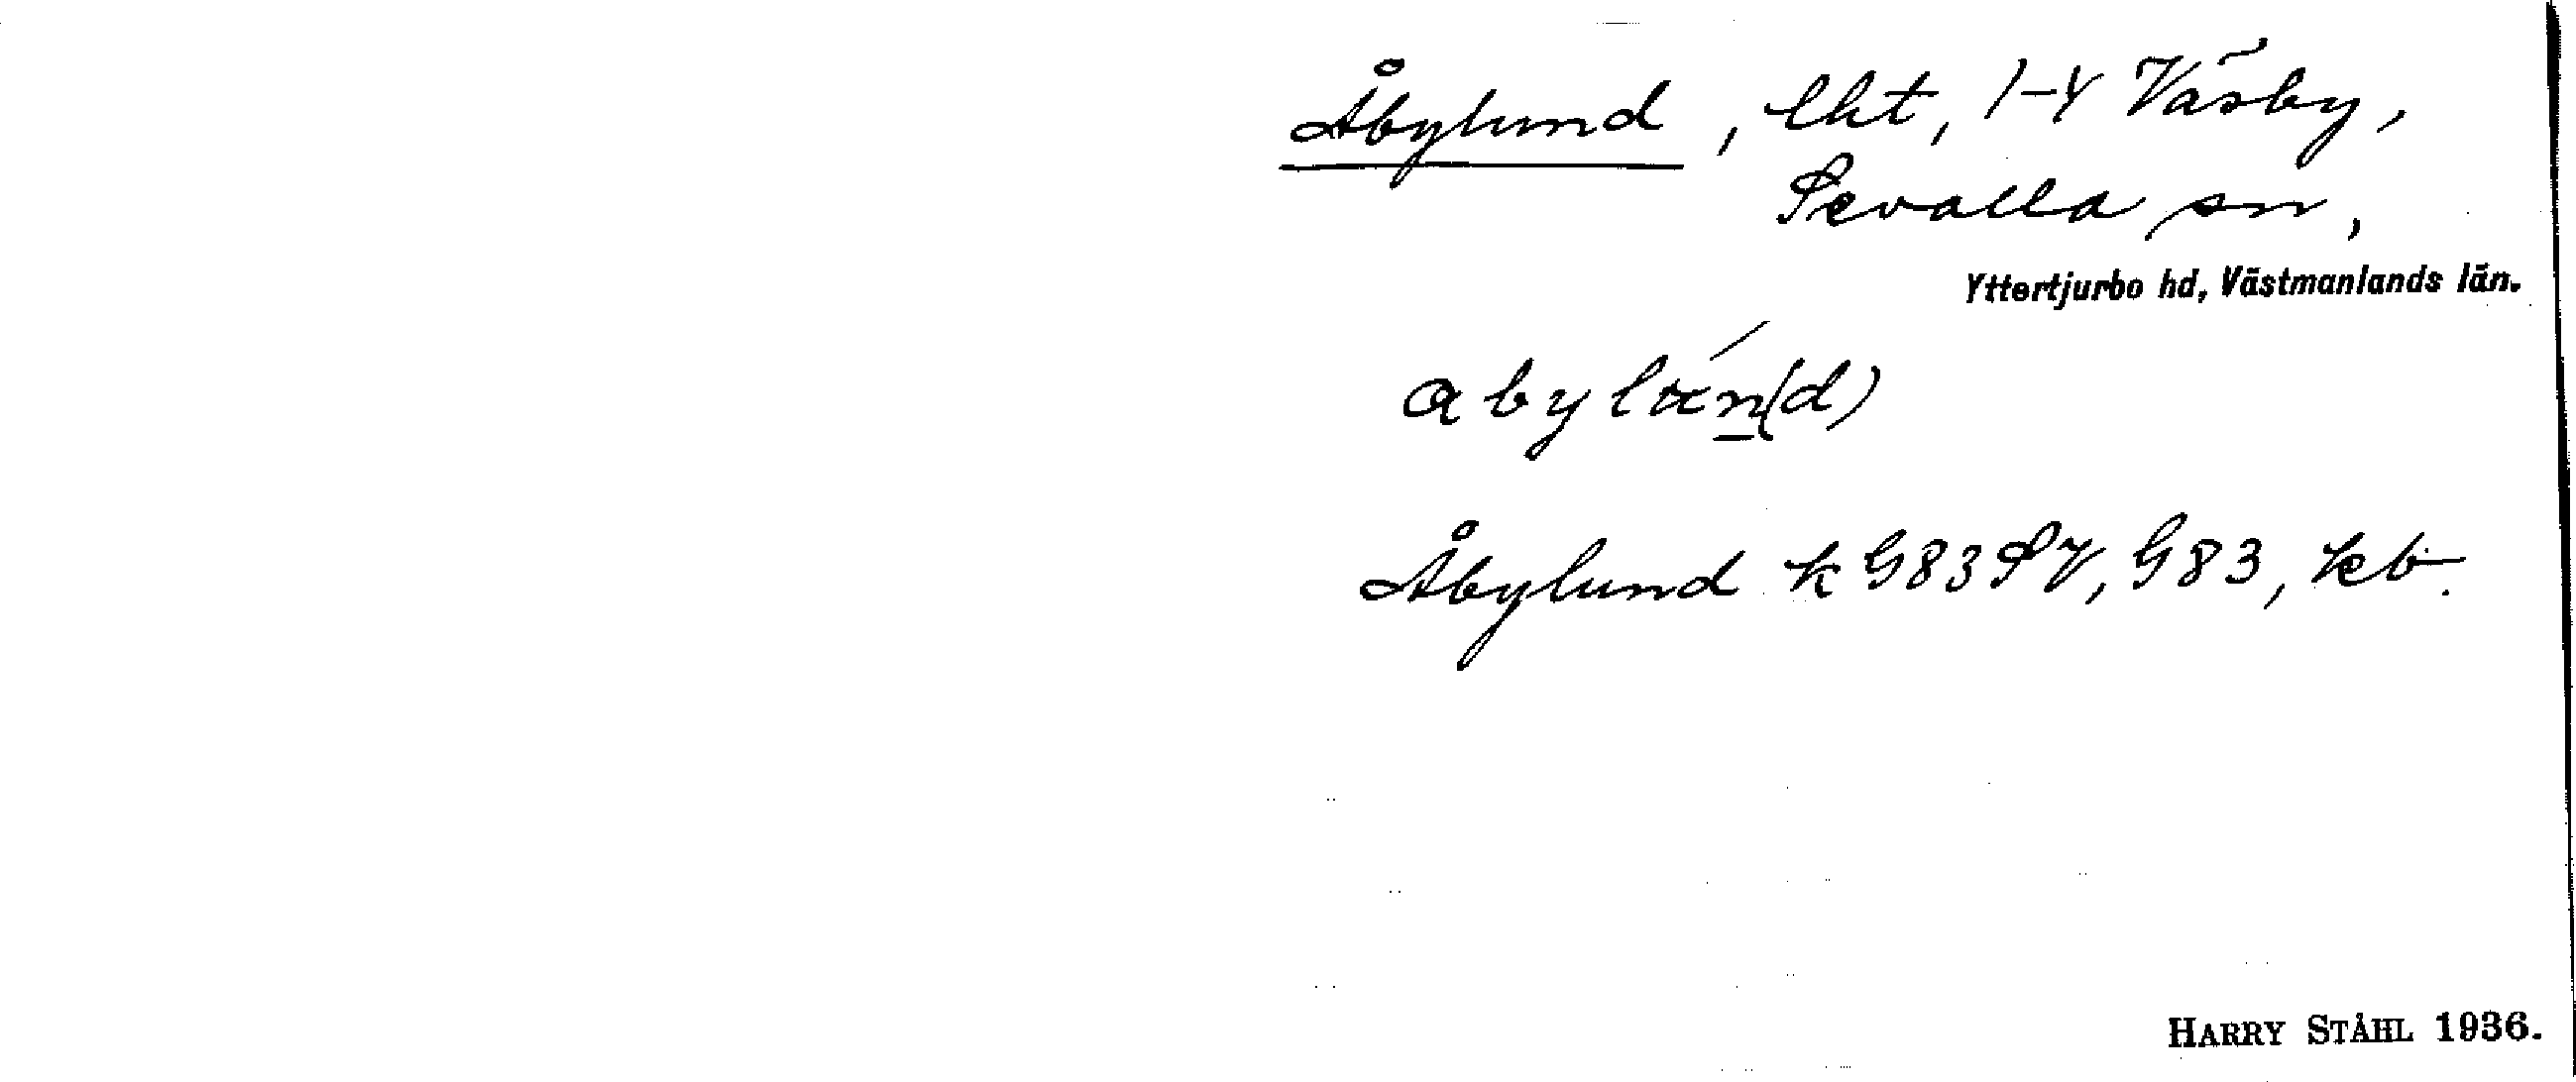 Åbylund, lht, 1-4 Väsby,
Sevalla sn,
Yttertjurbo hd, Västmanlands län.
Åbylund k G83SV, G83, kb.
HARRY STÅHL 1936.